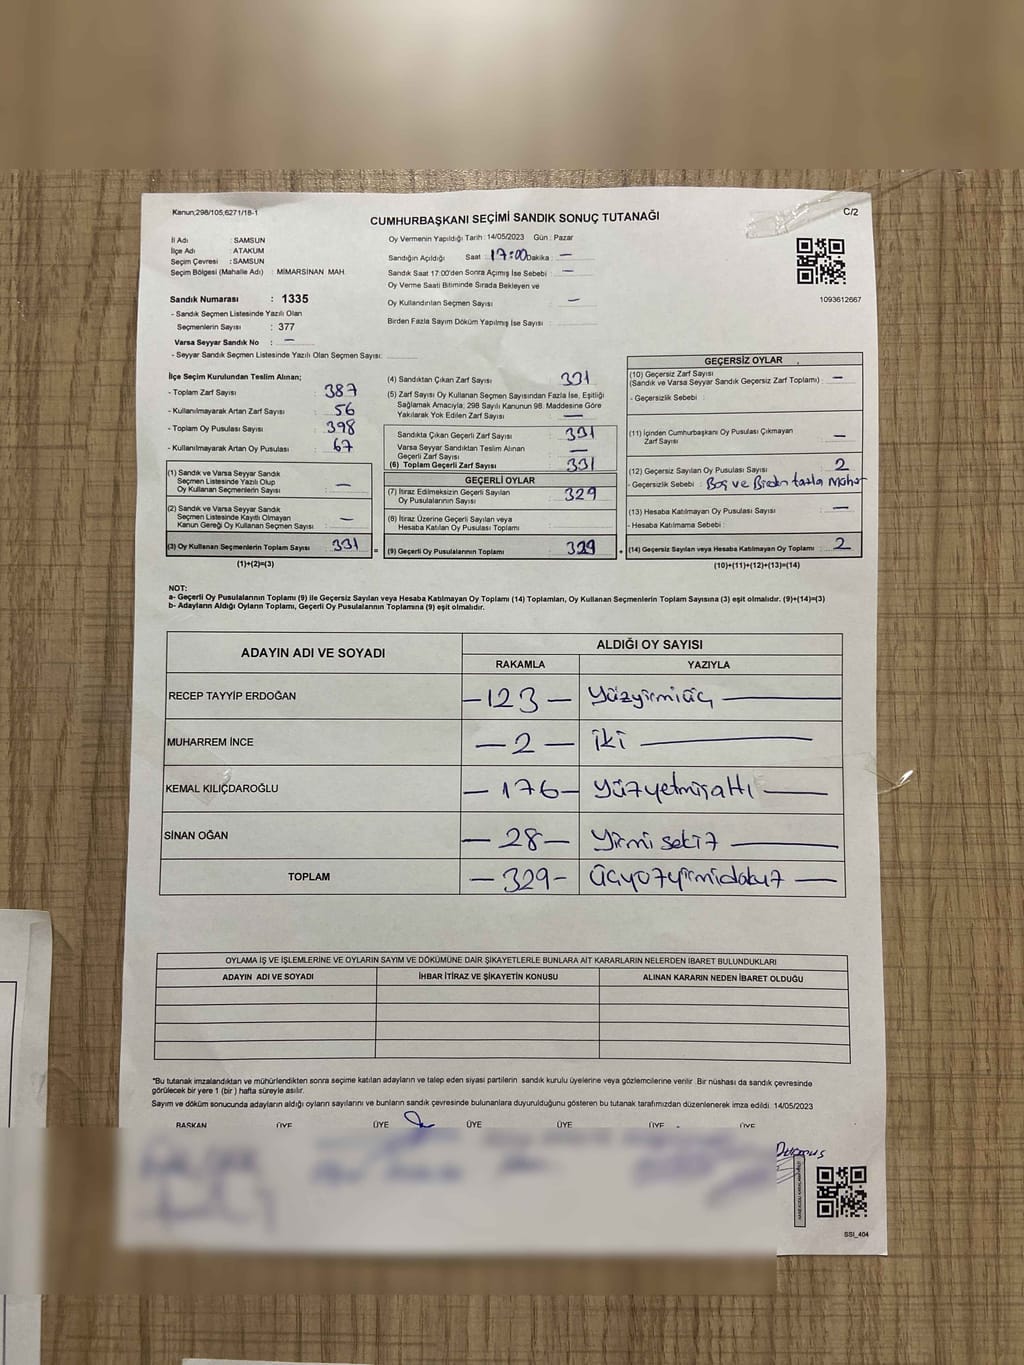 Kanun;298/105,6271/18-1
CUMHURBAŞKANI SEÇİMİ SANDIK SONUÇ TUTANAĞI
C/2
İl Adı : SAMSUN
İlçe Adı : ATAKUM
Seçim Çevresi : SAMSUN
Seçim Bölgesi (Mahalle Adı) : MİMARSİNAN MAH.
Sandık Numarası : 1335
- Sandık Seçmen Listesinde Yazılı Olan
Seçmenlerin Sayısı : 377
Varsa Seyyar Sandık No : —
- Seyyar Sandık Seçmen Listesinde Yazılı Olan Seçmen Sayısı:
Oy Vermenin Yapıldığı Tarih : 14/05/2023 Gün : Pazar
Sandığın Açıldığı Saat : 17:00 Dakika : —
Sandık Saat 17:00'den Sonra Açımış İse Sebebi : —
Oy Verme Saati Bitiminde Sırada Bekleyen ve
Oy Kullandırılan Seçmen Sayısı : —
Birden Fazla Sayım Döküm Yapılmış İse Sayısı :
1093612667
İlçe Seçim Kurulundan Teslim Alınan;
- Toplam Zarf Sayısı : 387
- Kullanılmayarak Artan Zarf Sayısı : 56
- Toplam Oy Pusulası Sayısı : 398
- Kullanılmayarak Artan Oy Pusulası : 67
(1) Sandık ve Varsa Seyyar Sandık
Seçmen Listesinde Yazılı Olup
Oy Kullanan Seçmenlerin Sayısı : —
(2) Sandık ve Varsa Seyyar Sandık
Seçmen Listesinde Kayıtlı Olmayan
Kanun Gereği Oy Kullanan Seçmen Sayısı : —
(3) Oy Kullanan Seçmenlerin Toplam Sayısı : 331
(1)+(2)=(3)
(4) Sandıktan Çıkan Zarf Sayısı : 331
(5) Zarf Sayısı Oy Kullanan Seçmen Sayısından Fazla İse, Eşitliği
Sağlamak Amacıyla; 298 Sayılı Kanunun 98. Maddesine Göre
Yakılarak Yok Edilen Zarf Sayısı : —
Sandıkta Çıkan Geçerli Zarf Sayısı : 331
Varsa Seyyar Sandıktan Teslim Alınan
Geçerli Zarf Sayısı : —
(6) Toplam Geçerli Zarf Sayısı : 331
GEÇERLİ OYLAR
(7) İtiraz Edilmeksizin Geçerli Sayılan
Oy Pusulalarının Sayısı : 329
(8) İtiraz Üzerine Geçerli Sayılan veya
Hesaba Katılan Oy Pusulası Toplamı :
= (9) Geçerli Oy Pusulalarının Toplamı : 329
GEÇERSİZ OYLAR
(10) Geçersiz Zarf Sayısı
(Sandık ve Varsa Seyyar Sandık Geçersiz Zarf Toplamı) : —
- Geçersizlik Sebebi :
(11) İçinden Cumhurbaşkanı Oy Pusulası Çıkmayan
Zarf Sayısı : —
(12) Geçersiz Sayılan Oy Pusulası Sayısı : 2
- Geçersizlik Sebebi : Boş ve Birden fazla Mühür
(13) Hesaba Katılmayan Oy Pusulası Sayısı : —
- Hesaba Katılmama Sebebi :
+ (14) Geçersiz Sayılan veya Hesaba Katılmayan Oy Toplamı : 2
(10)+(11)+(12)+(13)=(14)
NOT:
a- Geçerli Oy Pusulalarının Toplamı (9) ile Geçersiz Sayılan veya Hesaba Katılmayan Oy Toplamı (14) Toplamları, Oy Kullanan Seçmenlerin Toplam Sayısına (3) eşit olmalıdır. (9)+(14)=(3)
b- Adayların Aldığı Oyların Toplamı, Geçerli Oy Pusulalarının Toplamına (9) eşit olmalıdır.
ADAYIN ADI VE SOYADI ALDIĞI OY SAYISI
RAKAMLA YAZIYLA
RECEP TAYYİP ERDOĞAN — 123 — Yüzyirmiüç —
MUHARREM İNCE — 2 — İki —
KEMAL KILIÇDAROĞLU — 176 — Yüzyetmişaltı —
SİNAN OĞAN — 28 — Yirmi sekiz —
TOPLAM — 329 — Üçyüzyirmidokuz —
OYLAMA İŞ VE İŞLEMLERİNE VE OYLARIN SAYIM VE DÖKÜMÜNE DAİR ŞİKAYETLERLE BUNLARA AİT KARARLARIN NELERDEN İBARET BULUNDUKLARI
ADAYIN ADI VE SOYADI İHBAR İTİRAZ VE ŞİKAYETİN KONUSU ALINAN KARARIN NEDEN İBARET OLDUĞU
*Bu tutanak imzalandıktan ve mühürlendikten sonra seçime katılan adayların ve talep eden siyasi partilerin sandık kurulu üyelerine veya gözlemcilerine verilir. Bir nüshası da sandık çevresinde
görülecek bir yere 1 (bir ) hafta süreyle asılır.
Sayım ve döküm sonucunda adayların aldığı oyların sayılarını ve bunların sandık çevresinde bulunanlara duyurulduğunu gösteren bu tutanak tarafımızdan düzenlenerek imza edildi. 14/05/2023
BAŞKAN ÜYE ÜYE ÜYE ÜYE ÜYE ÜYE
Durmuş
SSI_404